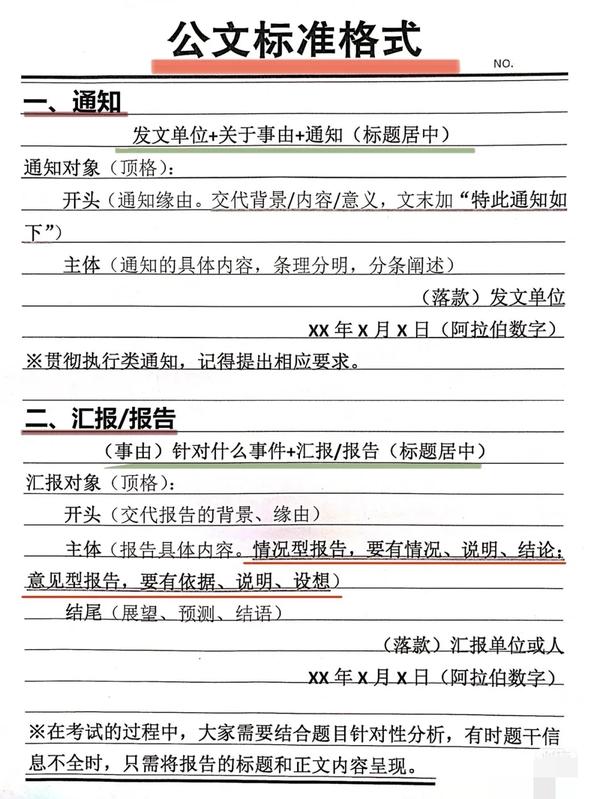 公文标准格式
NO.
一、通知
发文单位+关于事由+通知（标题居中）
通知对象（顶格）：
开头（通知缘由。交代背景/内容/意义，文末加“特此通知如
下”）
主体（通知的具体内容，条理分明，分条阐述）
（落款）发文单位
XX 年 X 月 X 日（阿拉伯数字）
※贯彻执行类通知，记得提出相应要求。
二、汇报/报告
（事由）针对什么事件+汇报/报告（标题居中）
汇报对象（顶格）：
开头（交代报告的背景、缘由）
主体（报告具体内容。情况型报告，要有情况、说明、结论；
意见型报告，要有依据、说明、设想）
结尾（展望、预测、结语）
（落款）汇报单位或人
XX 年 X 月 X 日（阿拉伯数字）
※在考试的过程中，大家需要结合题目针对性分析，有时题干信
息不全时，只需将报告的标题和正文内容呈现。